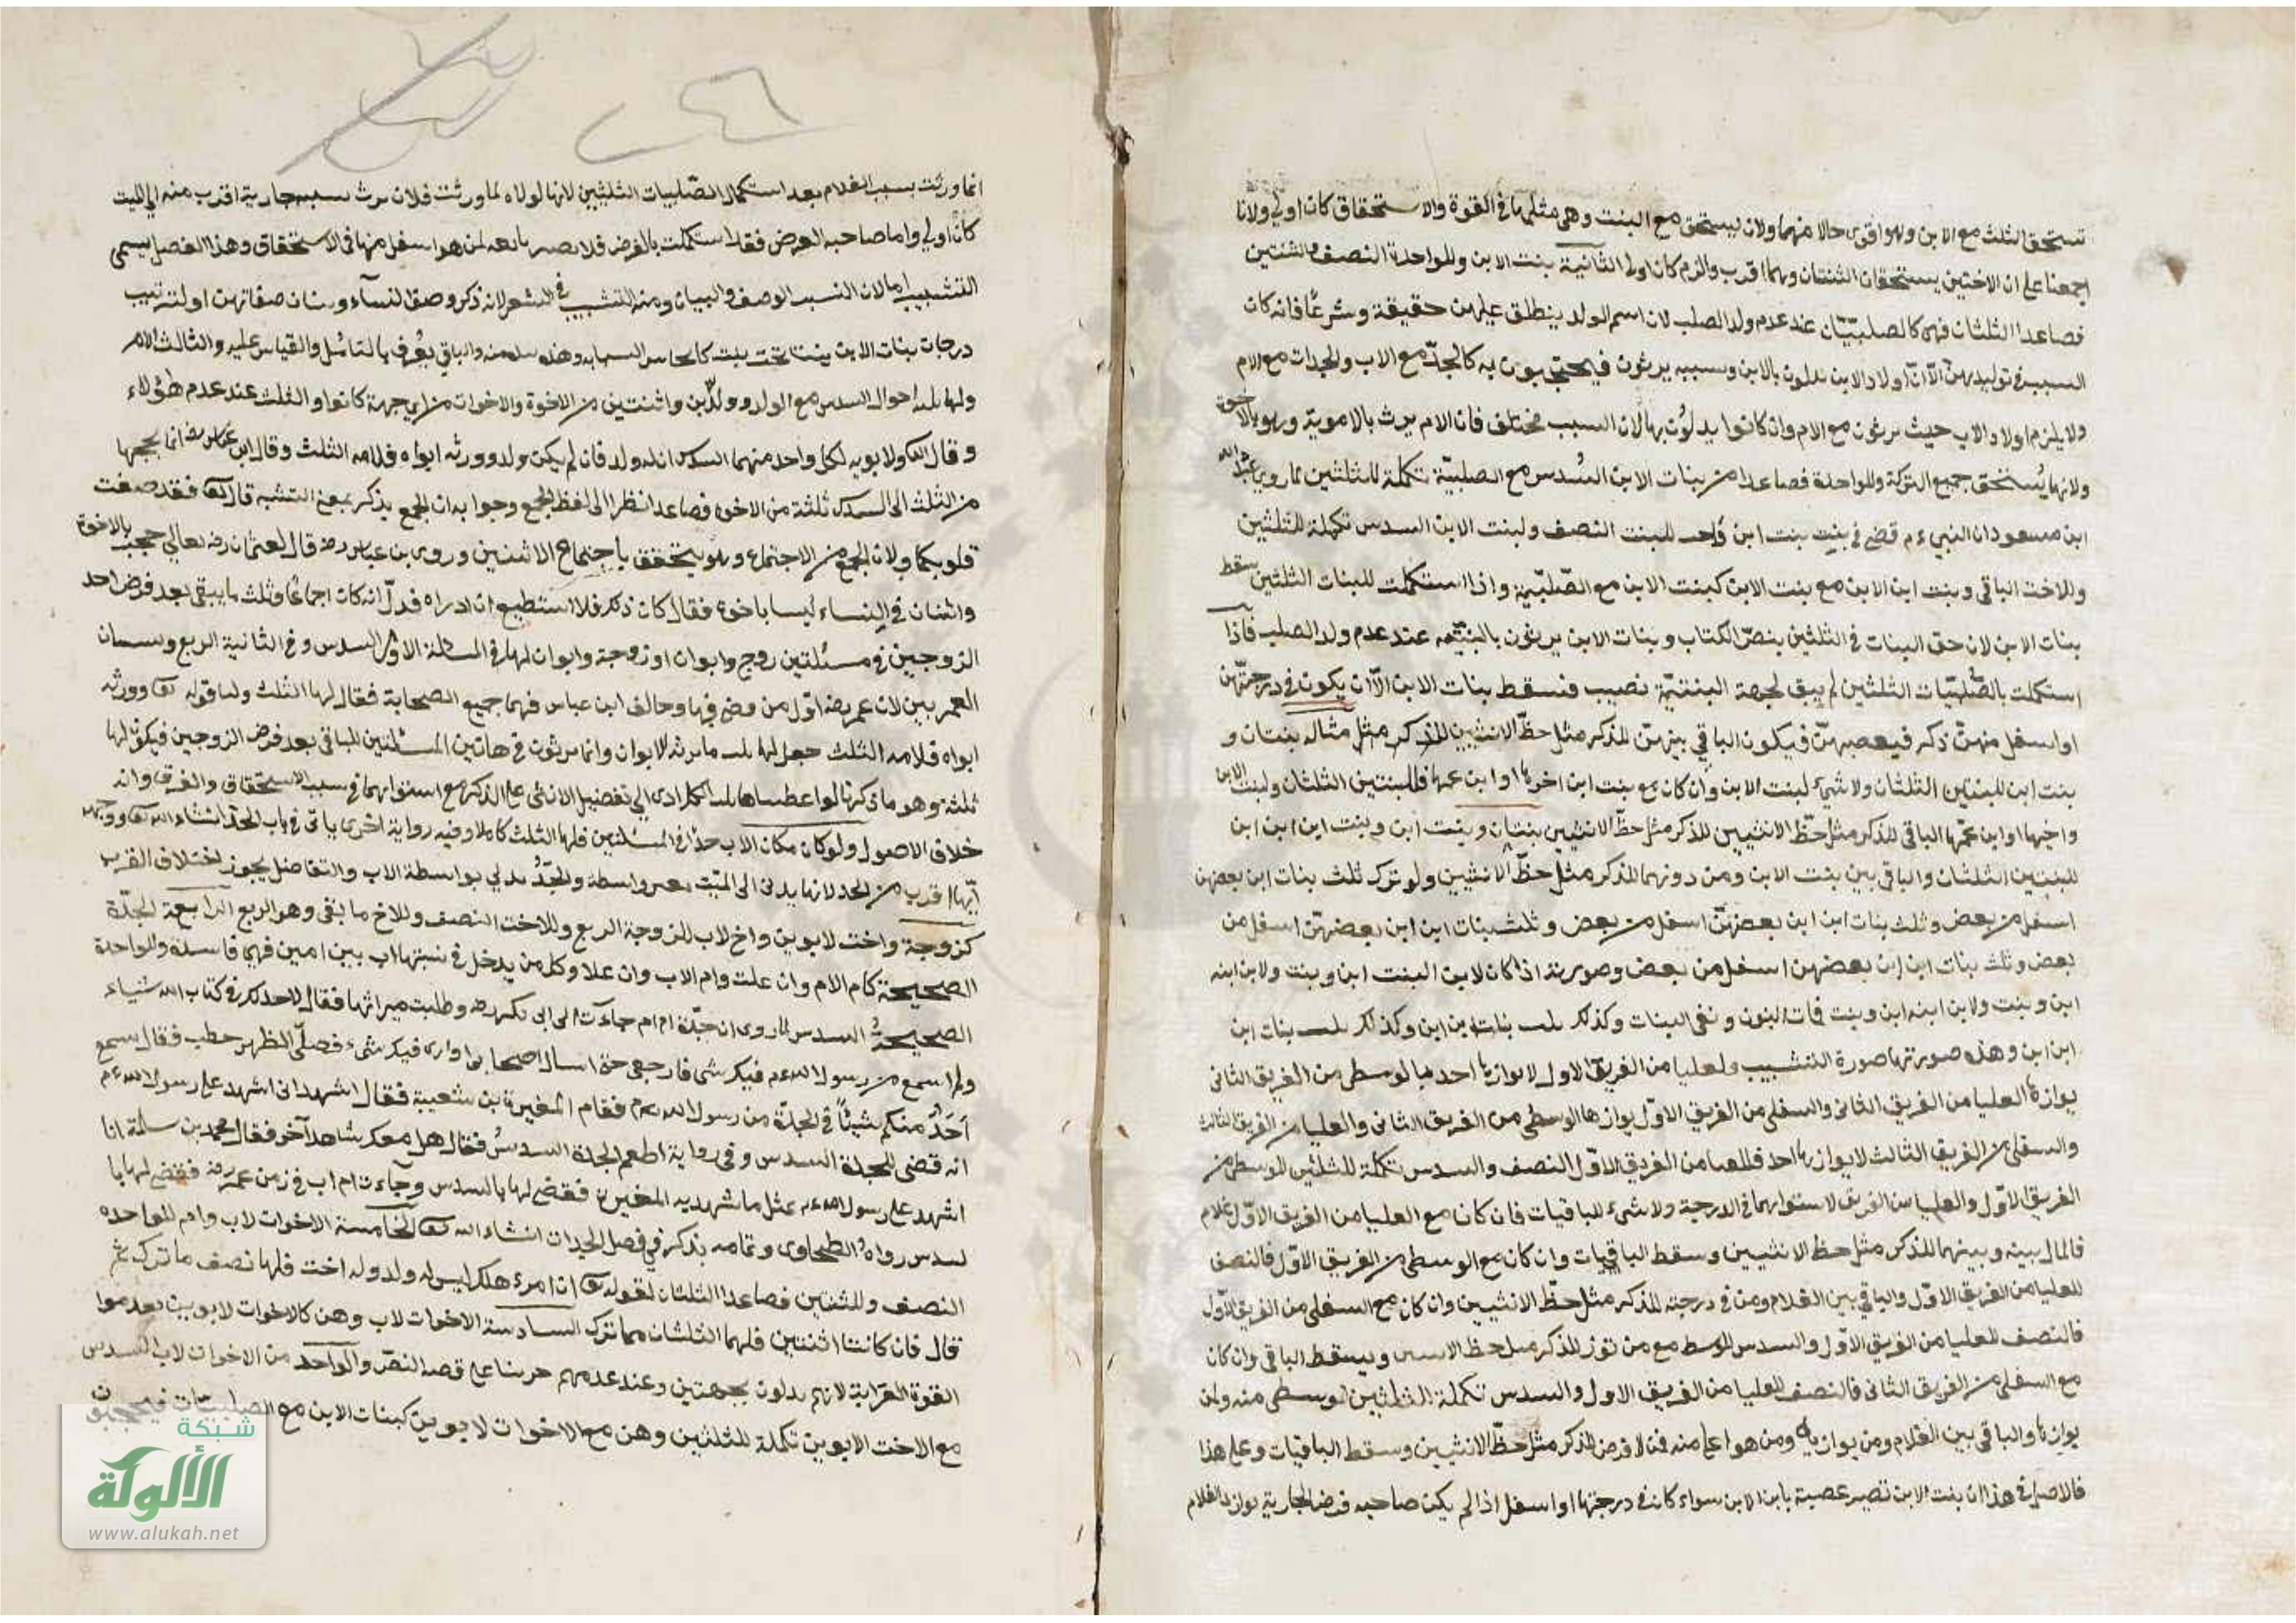 تستحق الثلث مع الابن وهو اقوى حالا منها ولان يستحق مع البنت وهى مثلها فى القوة والاستحقاق كان اولى ولانا
اجمعنا على ان الاختين يستحقان الثلثان وهما اقرب والزم كان اولى الثانية بنت الابن وللواحدة النصف وللثنتين
فصاعدا الثلثان فهى كالصلبيتان عند عدم ولد الصلب لان اسم الولد ينطلق عليهن حقيقة وشرعا فانه كان
السبب فى توليدهن الا ان اولاد الابن يدلون بالابن وبسببه يرثون فيحجبون به كالجد مع الاب والجدات مع الام
ولا يلزم اولاد الاب حيث يرثون مع الام وان كانوا يدلون بها لان السبب مختلف فان الام يرث بالاموية وهو بالاخوة
ولانها يستحق جميع التركة وللواحدة فصاعدا من بنات الابن السدس مع الصلبية تكملة للثلثين لما روى عبد الله
ابن مسعود ان النبى ءم قضى فى بنت بنت ابن واخت للبنت النصف ولبنت الابن السدس تكملة للثلثين
وللاخت الباقى وبنت ابن الابن مع بنت الابن كبنت الابن مع الصلبية واذا استكملت للبنات الثلثين سقط
بنات الابن لان حق البنات فى الثلثين بنص الكتاب وبنات الابن يرثون بالبنتيه عند عدم ولد الصلب فاذا
استكملت بالصلبيات الثلثين لم يبق لجهة البنتية نصيب فتسقط بنات الابن الا ان يكون فى درجتهن
او اسفل منهن ذكر فيعصبهن فيكون الباقى بينهن للذكر مثل حظ الانثيين مثاله بنتان و
بنت ابن للبنتين الثلثان ولا شىء لبنت الابن وان كان مع بنت ابن اخوها او ابن عمها فللبنتين الثلثان ولبنت الابن
واخيها او ابن عمها الباقى للذكر مثل حظ الانثيين بنتان وبنت ابن وبنت ابن ابن ابن
للبنتين الثلثان والباقى بين بنت الابن ومن دونها للذكر مثل حظ الانثيين ولو ترك ثلث بنات ابن بعضهن
اسفل من بعض وثلث بنات ابن ابن بعضهن اسفل من بعض وثلث بنات ابن ابن بعضهن اسفل من
بعض وصورته اذا كان لابن البنت ابن وبنت ولابن ابنه
ابن وبنت ولابن ابنه ابن وبنت فات البنون وبقى البنات وكذلك بنات ابن ابن وكذلك بنات ابن
ابن ابن وهذه صورتها صورة التشبيب والعليا من الفريق الاول لا يوازيها احد والوسطى من الفريق الثانى
يوازيها العليا من الفريق الثانى والسفلى من الفريق الاول يوازيها الوسطى من الفريق الثانى والعليا من الفريق الثالث
والسفلى من الفريق الثالث لا يوازيها احد فللعليا من الفريق الاول النصف والسدس تكملة للثلثين للوسطى من
الفريق الاول والعليا من الفريق لاستوائهما فى الدرجة ولا شىء للباقيات فان كان مع العليا من الفريق الاول غلام
فالمال بينه وبينها للذكر مثل حظ الانثيين وسقط الباقيات وان كان مع الوسطى من الفريق الاول فالنصف
للعليا من الفريق الاول والباقى بين الغلام ومن فى درجته للذكر مثل حظ الانثيين وان كان مع السفلى من الفريق الاول
فالنصف للعليا من الفريق الاول والسدس للوسطى مع من توازى للذكر مثل حظ الانثيين ويسقط الباقى وان كان
مع السفلى من الفريق الثانى فالنصف للعليا من الفريق الاول والسدس تكملة الثلثين لوسطى منه ولمن
يوازيها والباقى بين الغلام ومن يوازيه ومن هو اعلى منه للذكر مثل حظ الانثيين وسقط الباقيات وعلى هذا
فالاصل فى هذا ان بنت الابن تصير عصبة بابن الابن سواء كان فى درجتها او اسفل اذا لم يكن صاحبه فرض الجارية الغلام
انما ورثت بسبب الغلام بعد استكمال الصلبيات الثلثين لانها لولاه لما ورثت فلان يرث بسبب جارية اقرب منه الى الميت
كان اولى واما صاحبة الفرض فقد استكملت بالفرض فلا يصير تابعه لمن هو اسفل منها فى الاستحقاق وهذا الفصل يسمى
التشبيب اما لان النسب الوصف والبيان ومنه التشبيب فى الشعر لانه ذكر وصف النساء وبيان صفاتهن او لترتيب
درجات بنات الابن بنتا تحت بنت والباقى يعرف بالتامل والقياس عليه والثالث الام
ولها احوال السدس مع الولد وولد ابن واثنتين من الاخوة والاخوات من اى جهة كانوا والثلث عند عدم هؤلاء
وقال الله ولابويه لكل واحد منهما السدس ان له ولد فان لم يكن ولد وورثه ابواه فلامه الثلث وقال ابن عباس رضه انما يحجبها
من الثلث الى السدس ثلثة من الاخوة فصاعدا نظرا الى لفظ الجمع وجوابه ان الجمع يذكر بمعنى التثنيه قال الله فقد صغت
قلوبكما ولان الجمع من الاجتماع وهو يتحقق باجتماع الاثنين وروى بن عباس رضه قال لعثمان رضه حجب بالاخوة
واثنان فى النساء ليسا باخوة فقال كان ذلك فلا استطيع ان ادراه فدل انه كان اجماعا وثلث ما يبقى بعد فرض احد
الزوجين فى مسئلتين زوج وابوان او زوجة وابوان لها فى المسئلة الاولى السدس وفى الثانية الربع ويسميان
العمريين لان عمر رضه اول من قضى فيها وخالف ابن عباس فيهما جميع الصحابة فقال لها الثلث ولنا قوله تعالى وورثه
ابواه فلامه الثلث جعل لها ثلث ما يرثه الابوان وانما يرثون فى هاتين المسئلتين الباقى بعد فرض الزوجين فيكون لها
ثلثه وهو ما ذكرنا ولو اعطيناها ثلث الكل ادى الى تفضيل الانثى على الذكر مع استوائهما فى سبب الاستحقاق والقرب وانه
خلاف الاصول ولو كان مكان الاب جدا فى المسئلتين فلها الثلث كاملا وفيه رواية اخرى ياتى فى باب الجد انشاء الله تعالى ووجهه
انها اقرب من الجد لانها يدلى الى الميت بغير واسطة والجد يدلى بواسطة الاب والتفاضل يجوز اختلاف القرب
كزوجة واخت لابوين واخ لاب للزوجة الربع وللاخت النصف وللاخ ما بقى وهو الربع الرابعة الجدة
الصحيحة كام الام وان علت وام الاب وان علا وكل من يدخل فى نسبتها اب بين امين فهى فاسدة وللواحدة
الصحيحة السدس لما روى ان جدة ام ام جاءت الى ابى بكر رضه وطلبت ميراثها فقال لا اجد لك فى كتاب الله شياء
ولم اسمع من رسول الله ءم فيك شى فارجعى حتى اسال اصحابى فيك شىء فصلى الظهر خطب فقال سمع
احد منكم شيئا فى الجدة من رسول الله ءم فقام المغيرة بن شعبة فقال اشهد انى اشهد على رسول الله ءم
انه قضى للجدة السدس وفى رواية اطعم الجدة السدس فقال هل معك شاهد آخر فقال محمد بن سلمة انا
اشهد على رسول الله ءم بمثل ما شهد به المغيرة فقضى لها بالسدس وجاءت ام اب فى زمن عمر رضه فقضى لها با
لسدس رواه الطحاوى وتمامه يذكر فى فصل الجدات انشاء الله تعالى الخامسة الاخوات لاب وام للواحده
النصف وللثنتين فصاعدا الثلثان لقوله تعالى ان امرء هلك ليس له ولد وله اخت فلها نصف ما ترك ثم
قال فان كانتا اثنتين فلهما الثلثان مما ترك السادسة الاخوات لاب وهن كالاخوات لابوين بعدموا
القوة القرابة لانهم يدلون بجهتين وعند عدمهم جرينا على قصه النص والواحد من الاخوات لاب السدس
مع الاخت الابوين تكملة للثلثين وهن مع الاخوات لابوين كبنات الابن مع الصلبيات فيحجبن
شبكة
الألوكة
www.alukah.net